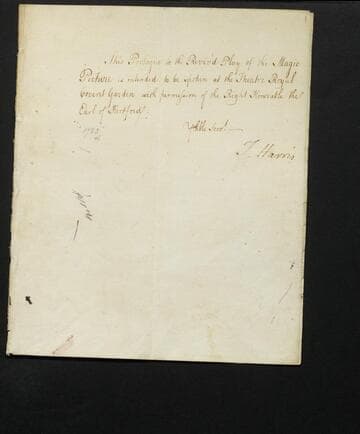 This Prologue to the Reviv'd Play of the Magic
Picture is intended to be spoken at the Theatre Royal
Covent Garden with permission of the Right Honorable the
Earl of Hertford
T. Harris